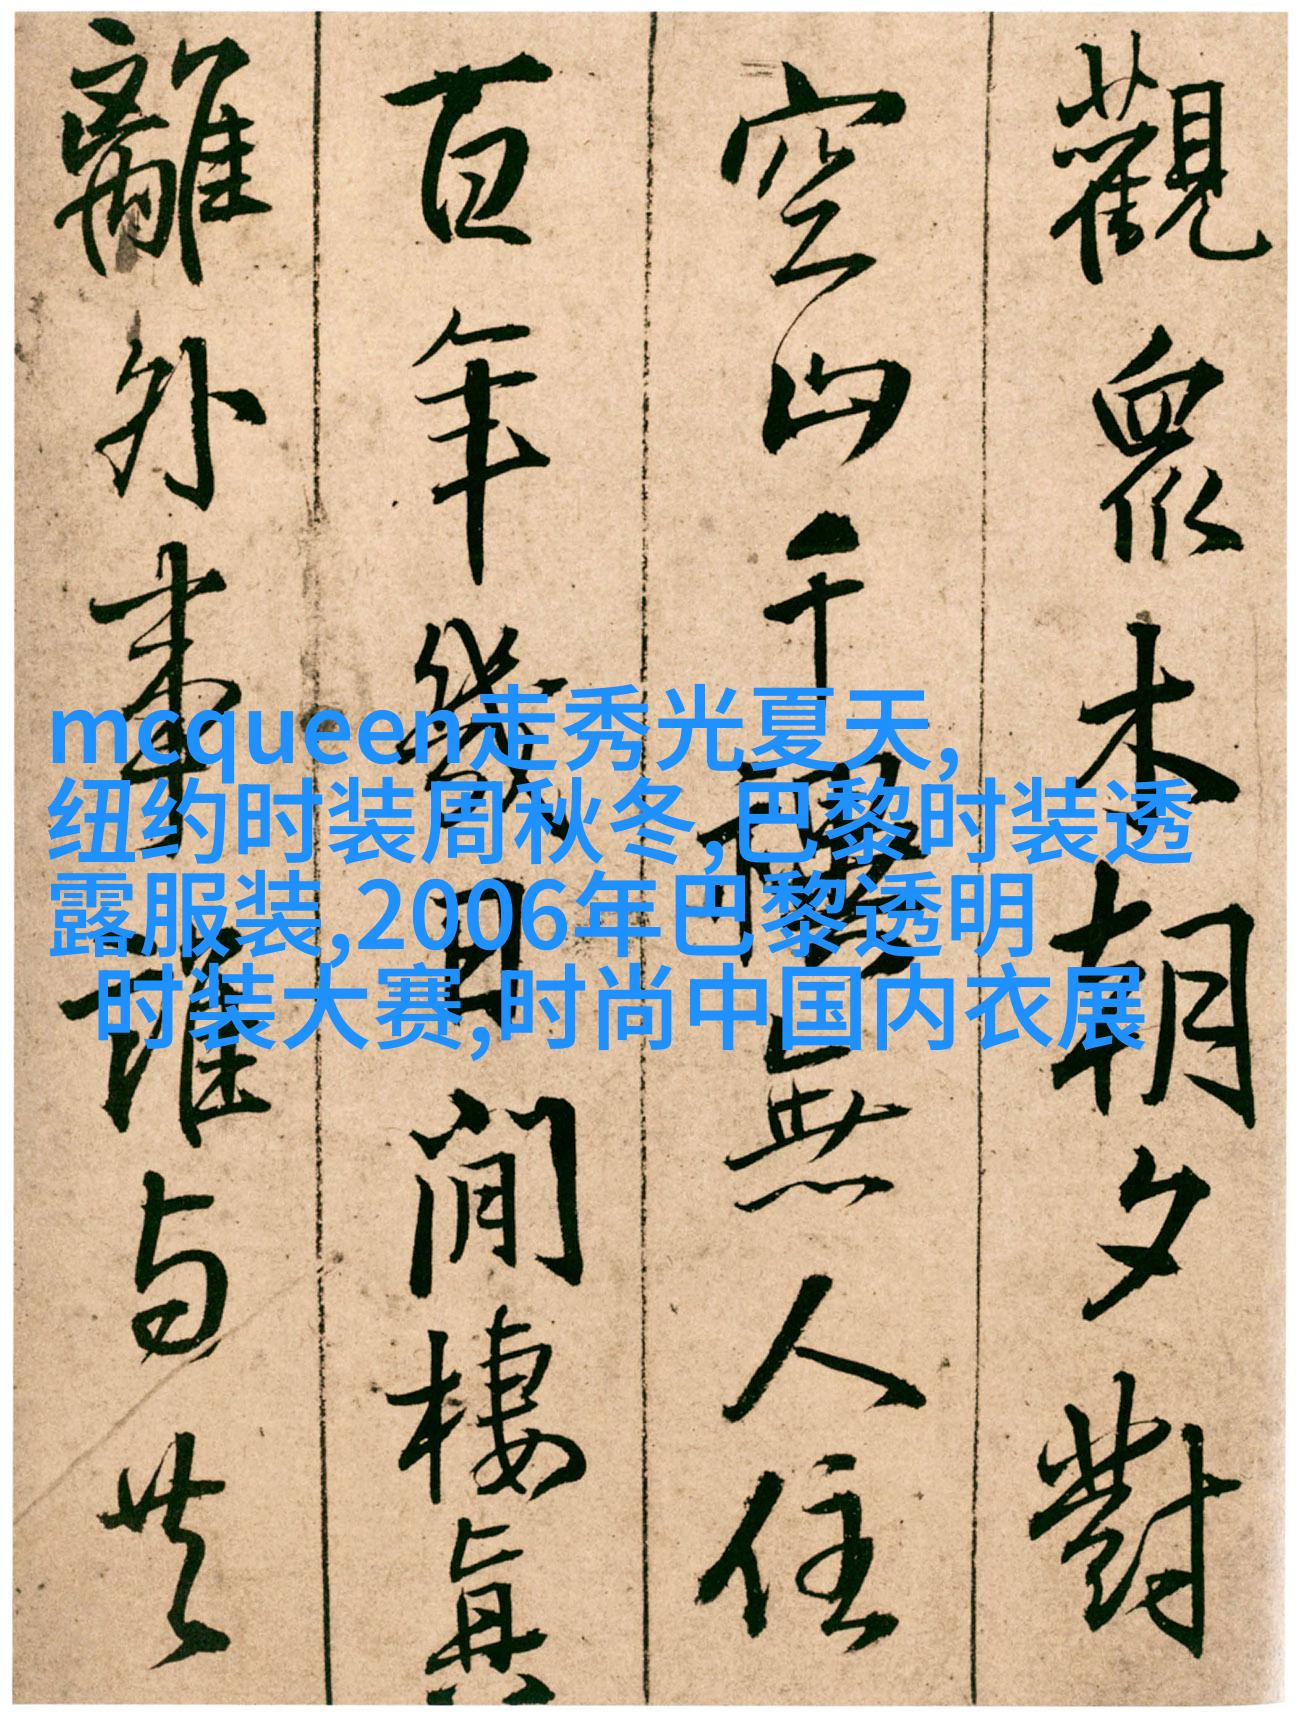 觀眾木朝夕對
空山千無人住
百年幾日閒棲真
離外事誰与共
mcqueen走秀光夏天,
纽约时装周秋冬,巴黎时装透
露服装,2006年巴黎透明
时装大赛,时尚中国内衣展